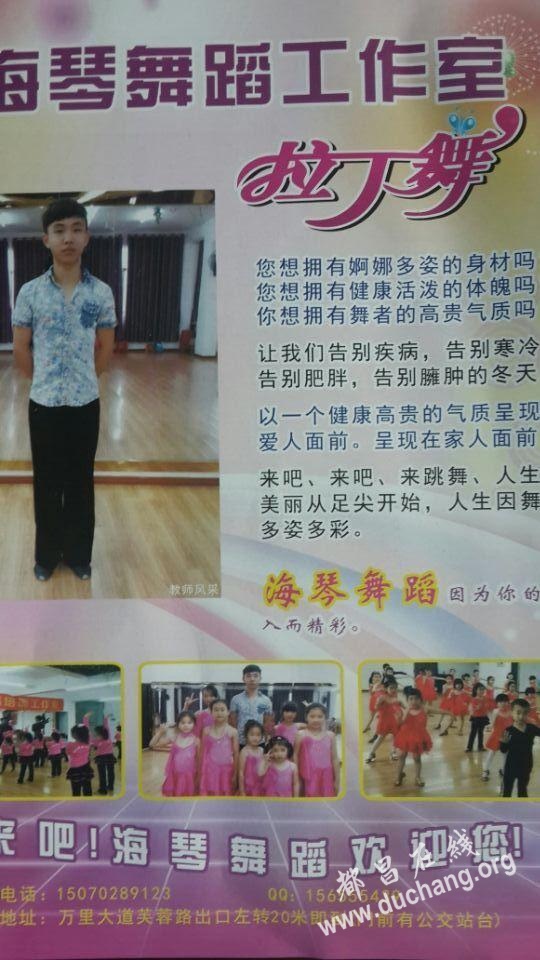 海琴舞蹈工作室
拉丁舞
您想拥有婀娜多姿的身材吗
您想拥有健康活泼的体魄吗
你想拥有舞者的高贵气质吗
让我们告别疾病，告别寒冷
告别肥胖，告别臃肿的冬天
以一个健康高贵的气质呈现
爱人面前。呈现在家人面前
来吧、来吧、来跳舞、人生
美丽从足尖开始，人生因舞
多姿多彩。
教师风采
海琴舞蹈 因为你的
入而精彩。
蹈工作室
来吧!海琴舞蹈欢迎您!
电话：15070289123 QQ:
地址：万里大道芙蓉路出口左转20米即 前有公交站台)
都昌在线
www.duchang.org